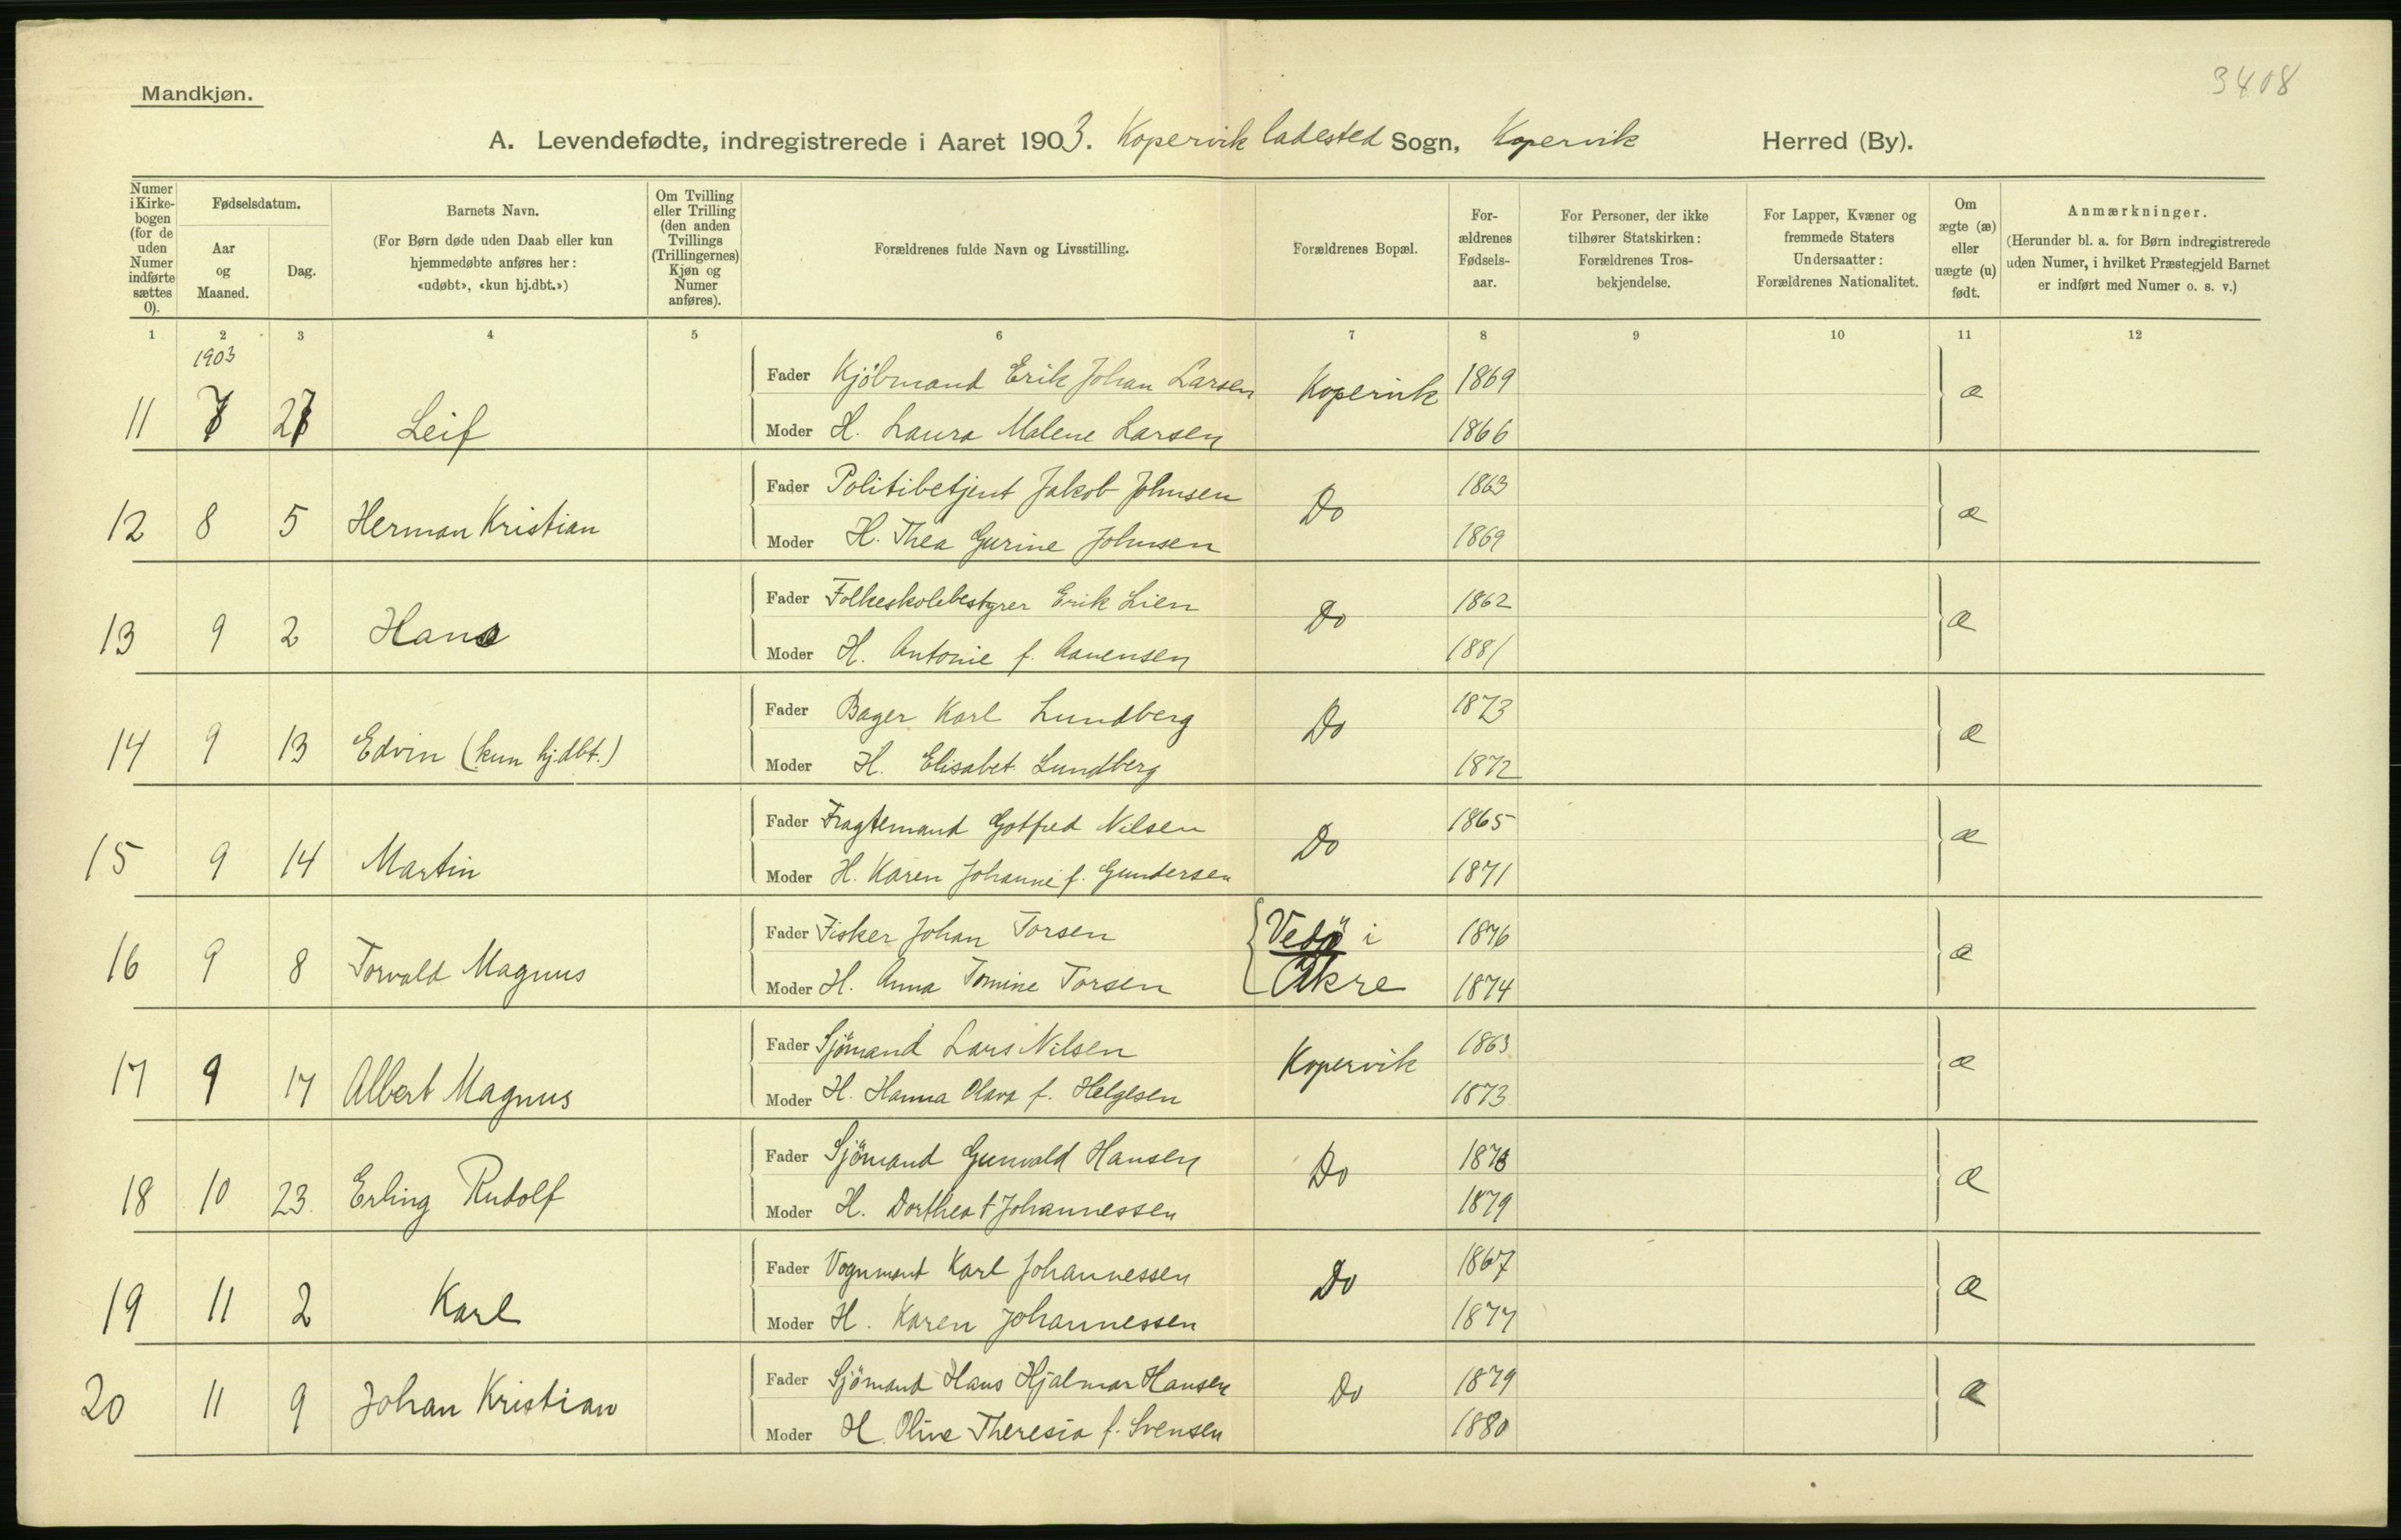 3408
Mandkjøn.
A. Levendefødte, indregistrerede i Aaret 1903. Kopervik ladested Sogn, Kopervik Herred (By).
Numer i Kirkebogen (for de uden Numer indførte sættes 0).
Fødselsdatum.
Aar og Maaned.
Dag.
Barnets Navn.
(For Børn døde uden Daab eller kun hjemmedøbte anføres her: «udøbt», «kun hj.dbt.»)
Om Tvilling eller Trilling (den anden Tvillings (Trillingernes) Kjøn og Numer anføres).
Forældrenes fulde Navn og Livsstilling.
Forældrenes Bopæl.
For-ældrenes Fødsels-aar.
For Personer, der ikke tilhører Statskirken: Forældrenes Tros-bekjendelse.
For Lapper, Kvæner og fremmede Staters Undersaatter: Forældrenes Nationalitet.
Om ægte (æ) eller uægte (u) født.
Anmærkninger.
(Herunder bl. a. for Børn indregistrerede uden Numer, i hvilket Præstegjeld Barnet er indført med Numer o. s. v.)
1 2 3 4 5 6 7 8 9 10 11 12
1903
Fader Kjöbmand Erik Johan Larsen Kopervik 1869 æ
11 7 27 Leif Moder H. Laura Malene Larsen 1866
Fader Politibetjent Jakob Johnsen Do 1863 æ
12 8 5 Herman Kristian Moder H. Thea Gurine Johnsen 1869
Fader Folkeskolebestyrer Erik Lien Do 1862 æ
13 9 2 Hans Moder H. Antonie f. Aanensen 1881
Fader Bager Karl Lundberg Do 1873 æ
14 9 13 Edvin (kun hj.dbt.) Moder H. Elisabet Lundberg 1872
Fader Fragtemand Gotfred Nilsen Do 1865 æ
15 9 14 Martin Moder H. Karen Johanne f. Gundersen 1871
Fader Fisker Johan Torsen Vedö i 1876 æ
16 9 8 Torvald Magnus Moder H. Anna Tomine Torsen Akre 1874
Fader Sjömand Lars Nilsen Kopervik 1863 æ
17 9 17 Albert Magnus Moder H. Hanna Olava f. Helgesen 1873
Fader Sjömand Gunvald Hansen Do 1873 æ
18 10 23. Erling Rudolf Moder H. Dorthea f Johannessen 1879
Fader Vognmand Karl Johannessen Do 1867 æ
19 11 2 Karl Moder H. Karen Johannessen 1877
Fader Sjömand Hans Hjalmar Hansen Do 1879 æ
20 11 9 Johan Kristian Moder H. Olive Theresia f. Svensen 1880